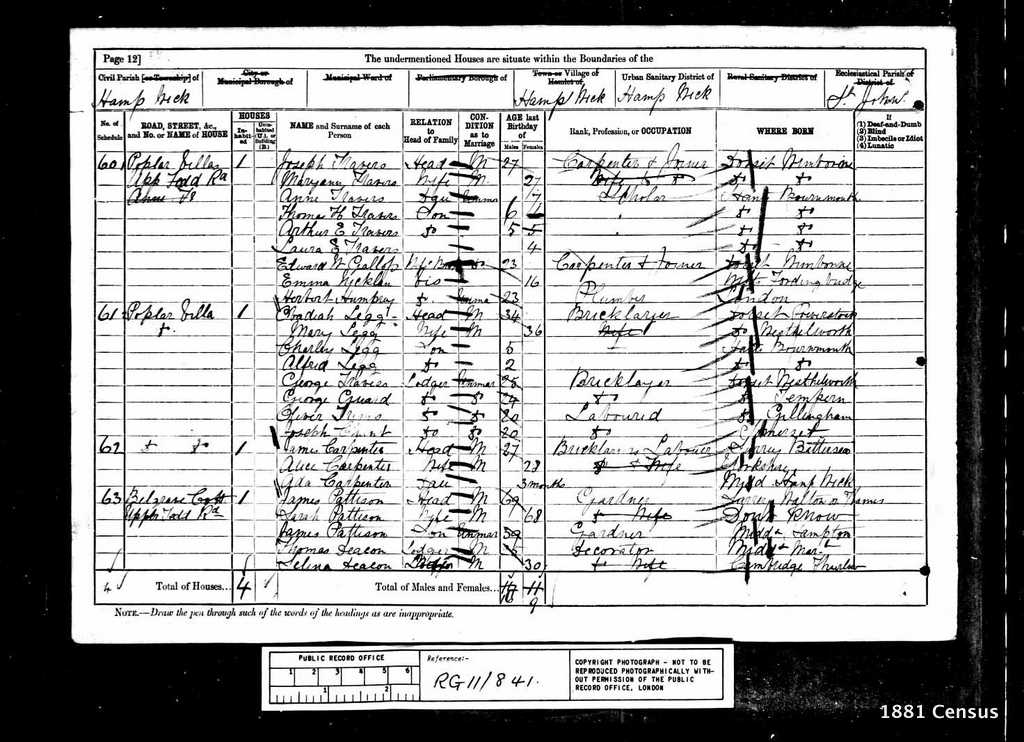 Page 12]
The undermentioned Houses are situate within the Boundaries of the
Civil Parish [or Township] of
City or Municipal Borough of
Municipal Ward of
Parliamentary Borough of
Town or Village of Hamlet of
Urban Sanitary District of
Rural Sanitary District of
Ecclesiastical Parish of District of
Hamp Wick
Hamp Wick
Hamp Wick
St Johns
No. of Schedule
ROAD, STREET, &c., and No. or NAME of HOUSE
HOUSES
Inhabited
Uninhabited (U.), or Building (B.)
NAME and Surname of each Person
RELATION to Head of Family
CONDITION as to Marriage
AGE last Birthday of
Males
Females
Rank, Profession, or OCCUPATION
WHERE BORN
If
(1) Deaf-and-Dumb
(2) Blind
(3) Imbecile or Idiot
(4) Lunatic
60 Poplar Villa 1 Joseph Travers Head M 27 Carpenter & Joiner Dorset Wimborne
Upp Todd Rd Maryann Travers Wife M 27 Wife Do Do
Anne Travers 17 Scholar Hants Bournmouth
Thomas H Travers Son 6 Do Do
Arthur E Travers Do 5 Do Do
Laura E Travers 4 Do Do
Edward W Gallop 23 Carpenter & Joiner Dorset Wimborne
Emma Nicklen Sis 16 Fordingbridge
Herbert Humpray 23 Plumber London
61 Poplar Villa 1 Obadiah Legg Head M 34 Bricklayer Dorset
Do Mary Legg Wife M 36 Wife Do
Charley Legg Son 5 Hants Bournmouth
Alfred Legg Do 2 Do Do
George Travers Lodger Unmar 25 Bricklayer Dorset
George Guard Do Do 24 Do Do
Oliver Do Do 20 Laboured Do Gillingham
Joseph Do Do 20 Do Somerset
62 Do Do 1 James Carpenter Head M 27 Bricklayers Labourer Surrey Battersea
Alice Carpenter Wife M 28 Wife Yorkshire
Ada Carpenter Dau 3 months Midd Hamp Wick
63 Belgrave Cott 1 James Pattison Head M 69 Gardner Surrey Walton on Thames
Upper Todd Rd Sarah Pattison Wife M 68 Do Wife Dont Know
James Pattison Son Unmar 39 Gardner Midd Hampton
Thomas Deacon Lodger M Decorator
Selina Deacon M 30 Do Wife Cambridge
4 Total of Houses... 4
Total of Males and Females... 11
9
NOTE.—Draw the pen through such of the words of the headings as are inappropriate.
PUBLIC RECORD OFFICE
1 2 3 4 5 6
1 2
Reference:-
RG 11/841.
COPYRIGHT PHOTOGRAPH - NOT TO BE
REPRODUCED PHOTOGRAPHICALLY WITH-
OUT PERMISSION OF THE PUBLIC
RECORD OFFICE, LONDON
1881 Census